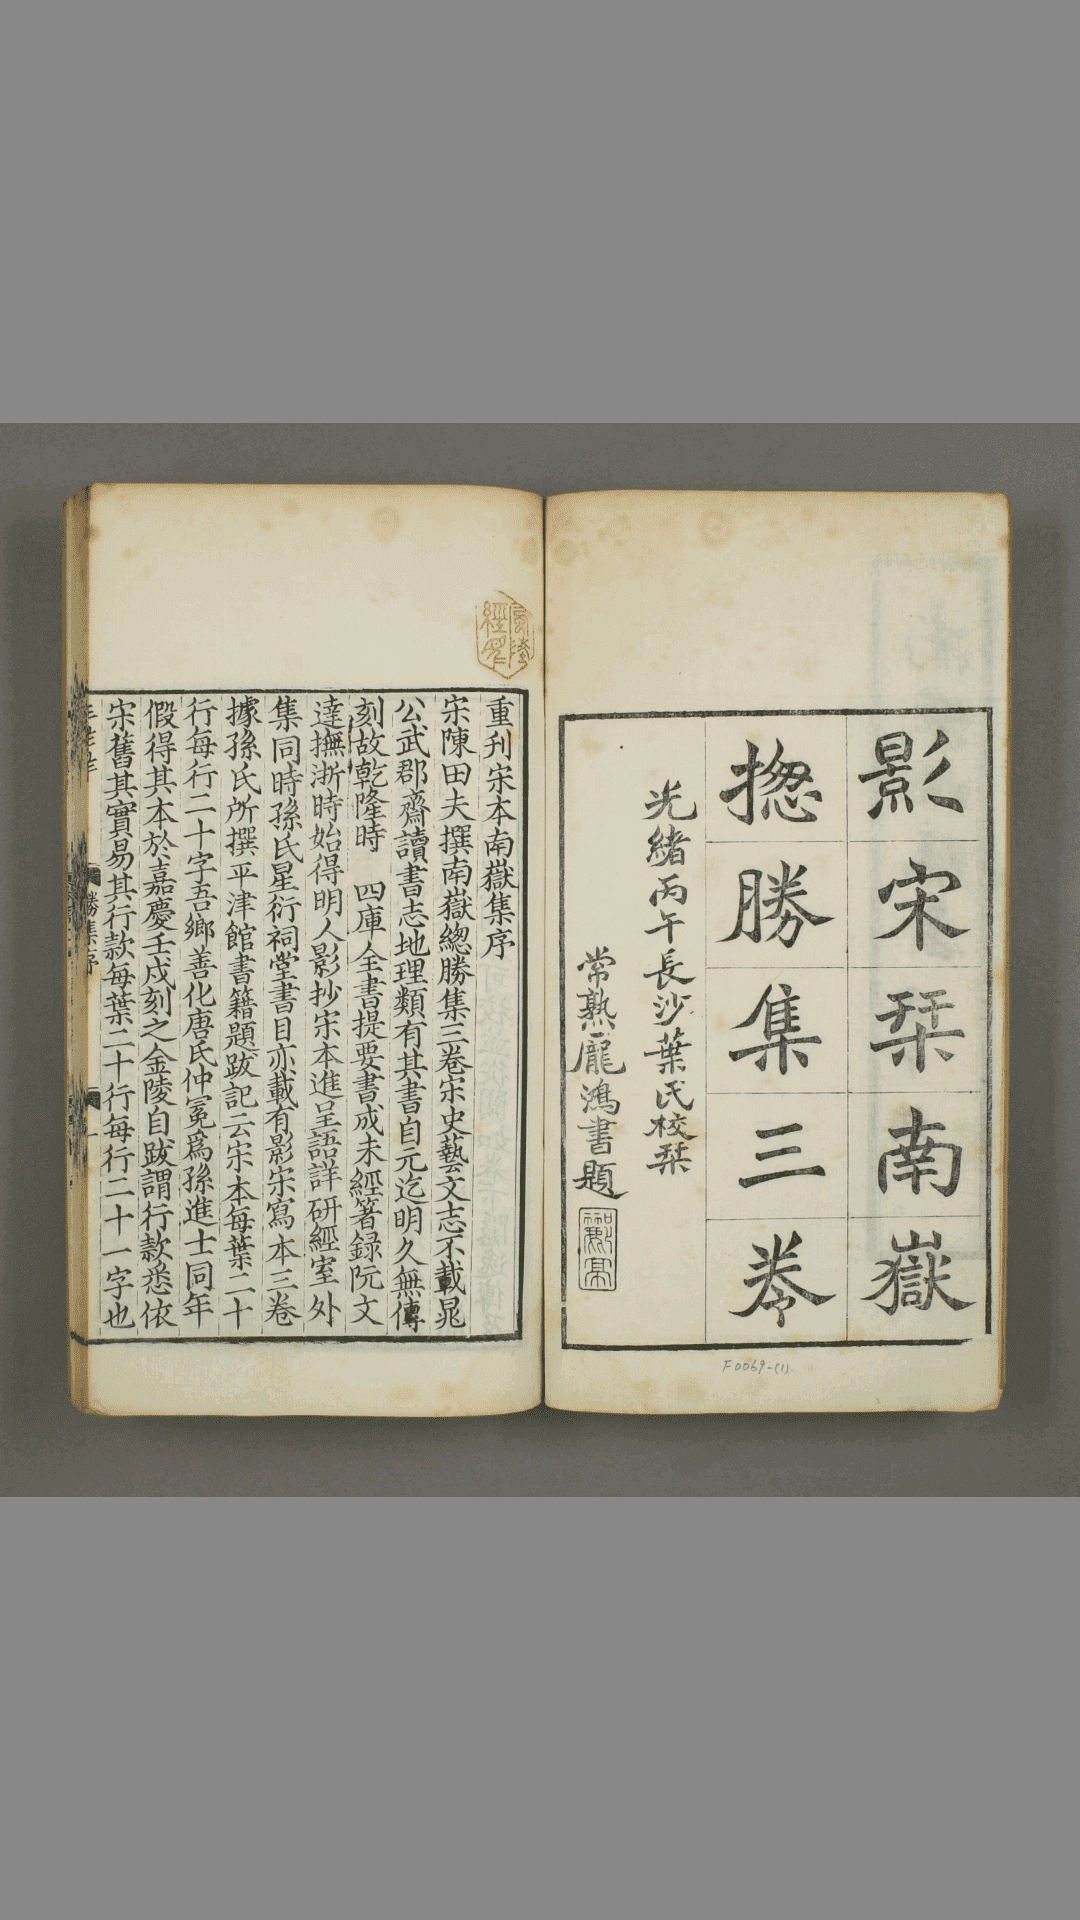 影宋栞南嶽
揔勝集三卷
光緒丙午長沙葉氏校栞
常熟龐鴻書題
F0069-(1)
重刋宋本南嶽集序
宋陳田夫撰南嶽總勝集三卷宋史藝文志不載晁
公武郡齋讀書志地理類有其書自元迄明久無傳
刻故乾隆時 四庫全書提要書成未經箸録阮文
達撫浙時始得明人影抄宋本進呈語詳研經室外
集同時孫氏星衍祠堂書目亦載有影宋寫本三卷
據孫氏所撰平津館書籍題跋記云宋本每葉二十
行每行二十字吾鄉善化唐氏仲冕爲孫進士同年
假得其本於嘉慶壬戌刻之金陵自跋謂行款悉依
宋舊其實易其行款每葉二十行每行二十一字也
勝集序
一